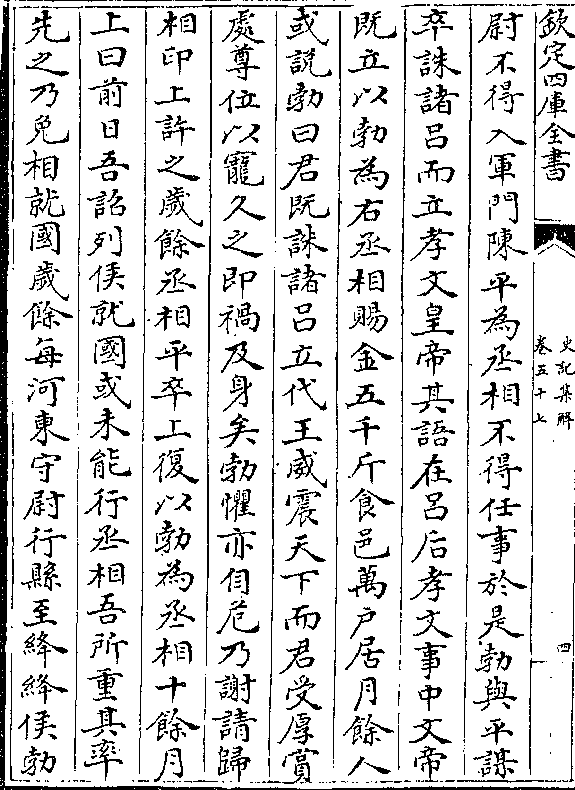 欽定四庫全書
史記集解
卷五十七
四
尉不得入軍門陳平為丞相不得任事於是勃與平謀
卒誅諸吕而立孝文皇帝其語在吕后孝文事中文帝
既立以勃為右丞相賜金五千斤食邑萬户居月餘人
或説勃曰君既誅諸吕立代王威震天下而君受厚賞
處尊位以寵久之即禍及身矣勃懼亦自危乃謝請歸
相印上許之歲餘丞相平卒上復以勃為丞相十餘月
上曰前日吾詔列侯就國或未能行丞相吾所重其率
先之乃免相就國歲餘每河東守尉行縣至絳絳侯勃